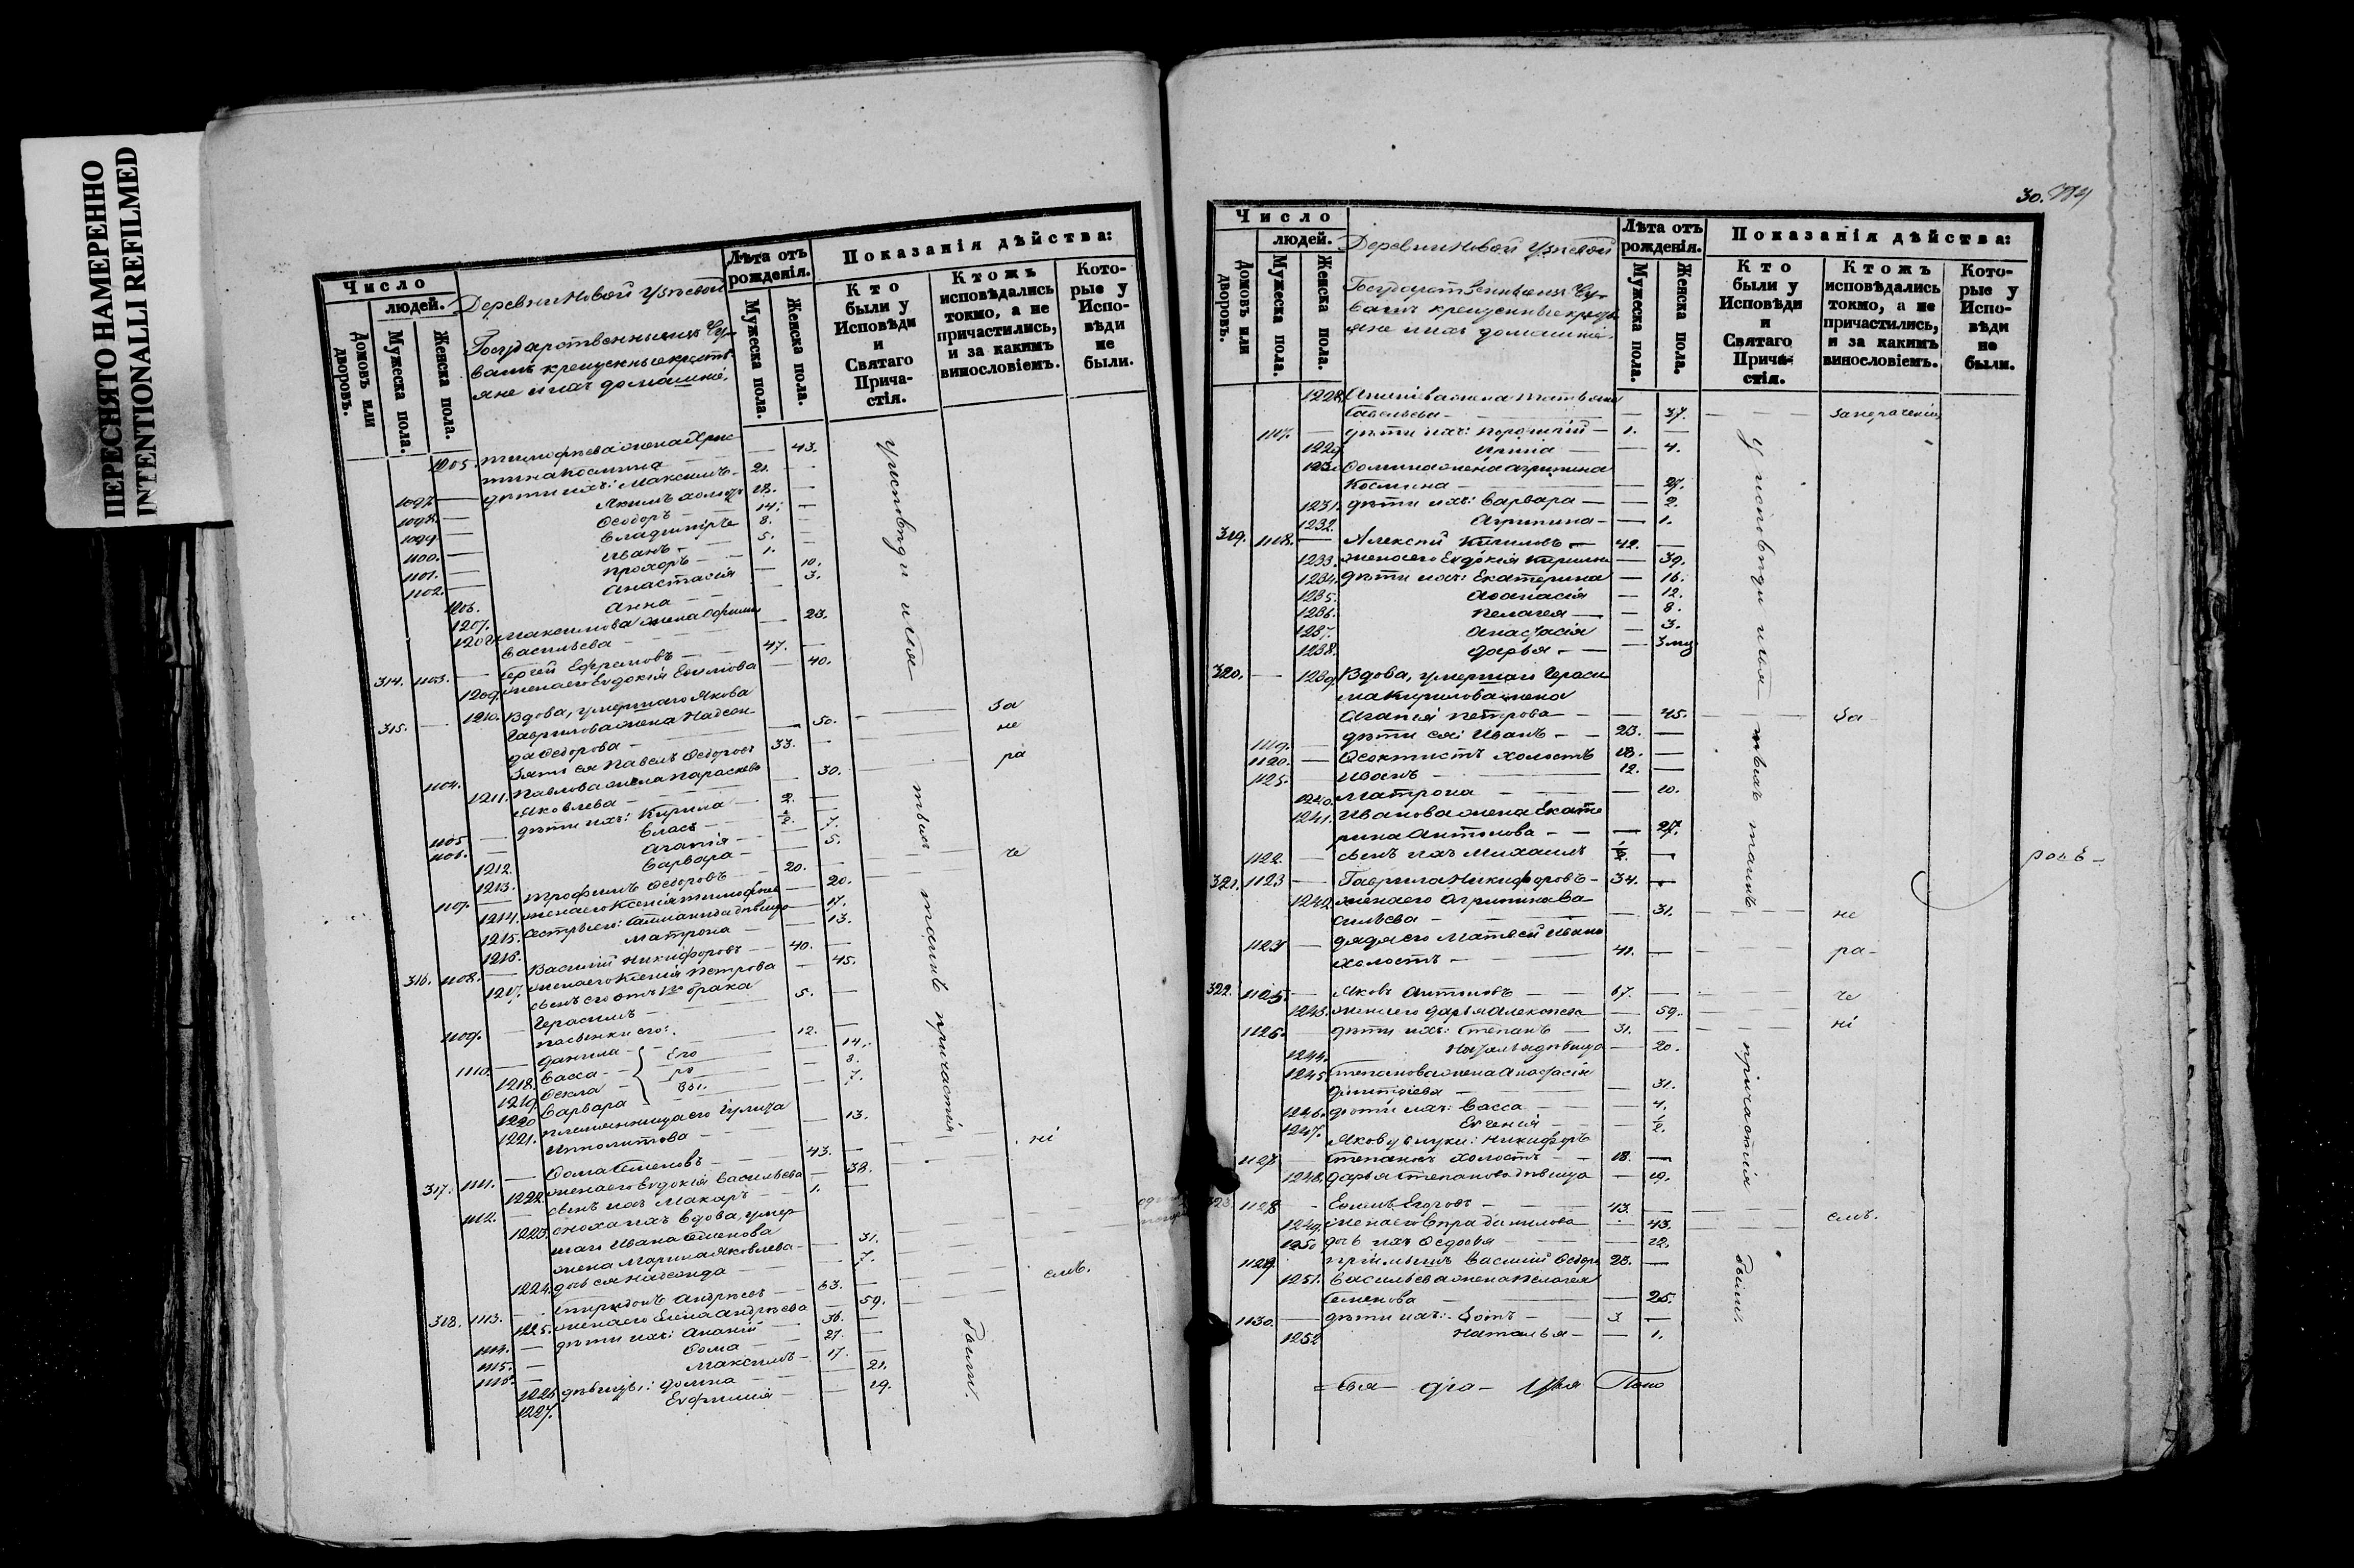 ПЕРЕСНЯТО НАМЕРЕННО
INTENTIONALLI REFILMED
Число
людей.
Домовъ или дворовъ.
Мужеска пола.
Женска пола.
Деревни Новой Узеевой
Государственныя Чу-
ваши крещеныя крестъ-
яне и ихъ домашніе.
Лѣта отъ рожденія.
Мужеска пола.
Женска пола.
Показанія дѣйства:
Кто были у Исповѣди и Святаго Прича-стія.
Ктожъ исповѣдались токмо, а не причастились, и за какимъ винословіемъ.
Кото-рые у Испо-вѣди не были.
1205. Тимофеева жена Хрис-
тина Космина — 43.
1097. — дѣти ихъ: Максимъ — 21. —
1098. — Якимъ холостъ 18. —
1099. — Ѳеодоръ — 14. —
1100. — Владиміръ 8. —
1101. — Иванъ — 5. —
1102. — Прохоръ — 1. —
1206. Анастасія — 10.
1207. Анна — 3.
1208. Максимова жена
Васильева — 23.
314. 1103. — Сергѣй Ефремовъ — 47. —
1209. жена его Евдокія Ефимова — 40.
315. — 1210. Вдова, умершаго Якова
Гаврилова жена Надеж-
да Ѳедорова — 50.
1104. Зять ея Павелъ Ѳедоровъ 33. —
1211. Павлова жена Параскева
Яковлева — 30.
1105 — дѣти ихъ: Кирила — 2. —
1106. — Власъ — ½. —
1212. Агапія — 7.
1213. Варвара — 5.
1107. — Трофимъ Ѳедоровъ — 20. —
1214. жена его Ксенія Тимофеева — 20.
1215. Сестры его: дѣвица — 17.
1216. Матрона — 13.
316. 1108. — Василий Никифоровъ — 40. —
1217. жена его Ксенія Петрова — 45.
сынъ его отъ 1го брака
1109. — Герасимъ — 5. —
пасынки его:
1110. — Данила — 12. —
1218. Васса — 14.
1219. Ѳекла — 8.
1220 Варвара — 7.
1221. племянница его Улита
Ипполитова — 13.
317. 1111. — Ѳома Семеновъ — 43. —
1222. жена его Евдокія Васильева — 38.
1112. — сынъ ихъ Макаръ — 1. —
1223. сноха ихъ вдова, умер-
шаго Ивана Семенова
жена Марина Яковлева — 31.
1224. дочь ея Надежда — 7.
318. 1113. — Спиридонъ Андреевъ — 63. —
1225. жена его Елена Андреева — 59.
1114. — дѣти ихъ: Ананій — 36. —
1115. — Ѳома — 27. —
1116. — Максимъ — 17. —
1226 дѣвицы: Домна — 21.
1227. Евфимія — 19.
у исповѣди и свя-
тыхъ
таинъ
причастія
были
За
не
ра
че
ні
емъ.
30.
Число
людей.
Домовъ или дворовъ.
Мужеска пола.
Женска пола.
Деревни Новой Узеевой
Государственныя Чу-
ваши крещеныя крестъ-
яне и ихъ домашніе.
Лѣта отъ рожденія.
Мужеска пола.
Женска пола.
Показанія дѣйства:
Кто были у Исповѣди и Святаго Прича-стія.
Ктожъ исповѣдались токмо, а не причастились, и за какимъ винословіемъ.
Кото-рые у Испо-вѣди не были.
1228. Ананіева жена Татьяна
Савельева — 37.
1117. — дѣти ихъ: — 1. —
1229. Ирина — 4.
1230 Ѳомина жена Агрипина
Космина — 27.
1231. дѣти ихъ: Варвара — 2.
1232. Агрипина — 1.
319. 1118. — Алексѣй Кириловъ — 42. —
1233. жена его Евдокія Кирилова — 39.
1234. дѣти ихъ: Екатерина — 16.
1235. Аѳанасія — 12.
1236. Пелагея — 8.
1237. Анастасія — 3.
1238. Дарья — 3 мц
320. — 1239. Вдова, умершаго Гераси
ма Кирилова жена
Агапія Петрова — 45.
1119. — дѣти ея: Иванъ — 23. —
1120. — Ѳеоктистъ холостъ 18. —
1125. Иванъ — 12. —
1240. Матрона — 10.
1241. Иванова жена Екате
рина Антонова — 27.
1122. — сынъ ихъ Михаилъ ½. —
321. 1123 — Гаврила Никифоровъ — 34. —
1242. жена его Агрипина Ва-
сильева — 31.
1124 — дядя его Матвей Ивановъ
холостъ — 41. —
322. 1125. — Яковъ Антиповъ — 67. —
1243. жена его Дарья Алексеева — 59.
1126. — дѣти ихъ: Степанъ — 31. —
1244. Наталья дѣвица — 20.
1245. Степанова жена Анастасія
Димитріева — 31.
1246. дѣти ихъ: Васса — 4.
1247. Евгенія — ½.
Якова внуки: Никифоръ
1127 — Степановъ холостъ — 18. —
1248. Дарья Степанова дѣвица — 19.
323. 1128 — Ефимъ Егоровъ — 43. —
1249. жена его — 43.
1250 дочь ихъ Ѳедосья — 12.
1129 приемышъ Василий Ѳедоровъ 23. —
1251. Васильева жена Пелагея
Семенова — 25.
1130. — дѣти ихъ: Зотъ — 3 —
1252 Наталья — 1.
у исповѣди и свя-
тыхъ таинъ
причастія
были.
За нераченіемъ
За
не
ра-
че
ні
емъ.